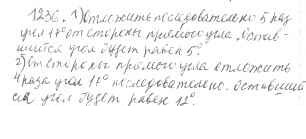 1236. 1) Отложить последовательно 5 раз
угол 17° от стороны прямого угла. Остав-
шийся угол будет равен 5°.
2) от стороны прямого угла отложить
4 раза угол 17° последовательно. Оставший
ся угол будет равен 12°.